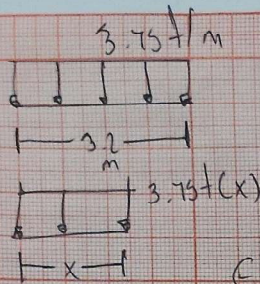 3.75 t/m
3.2
m
3.75t(x)
x